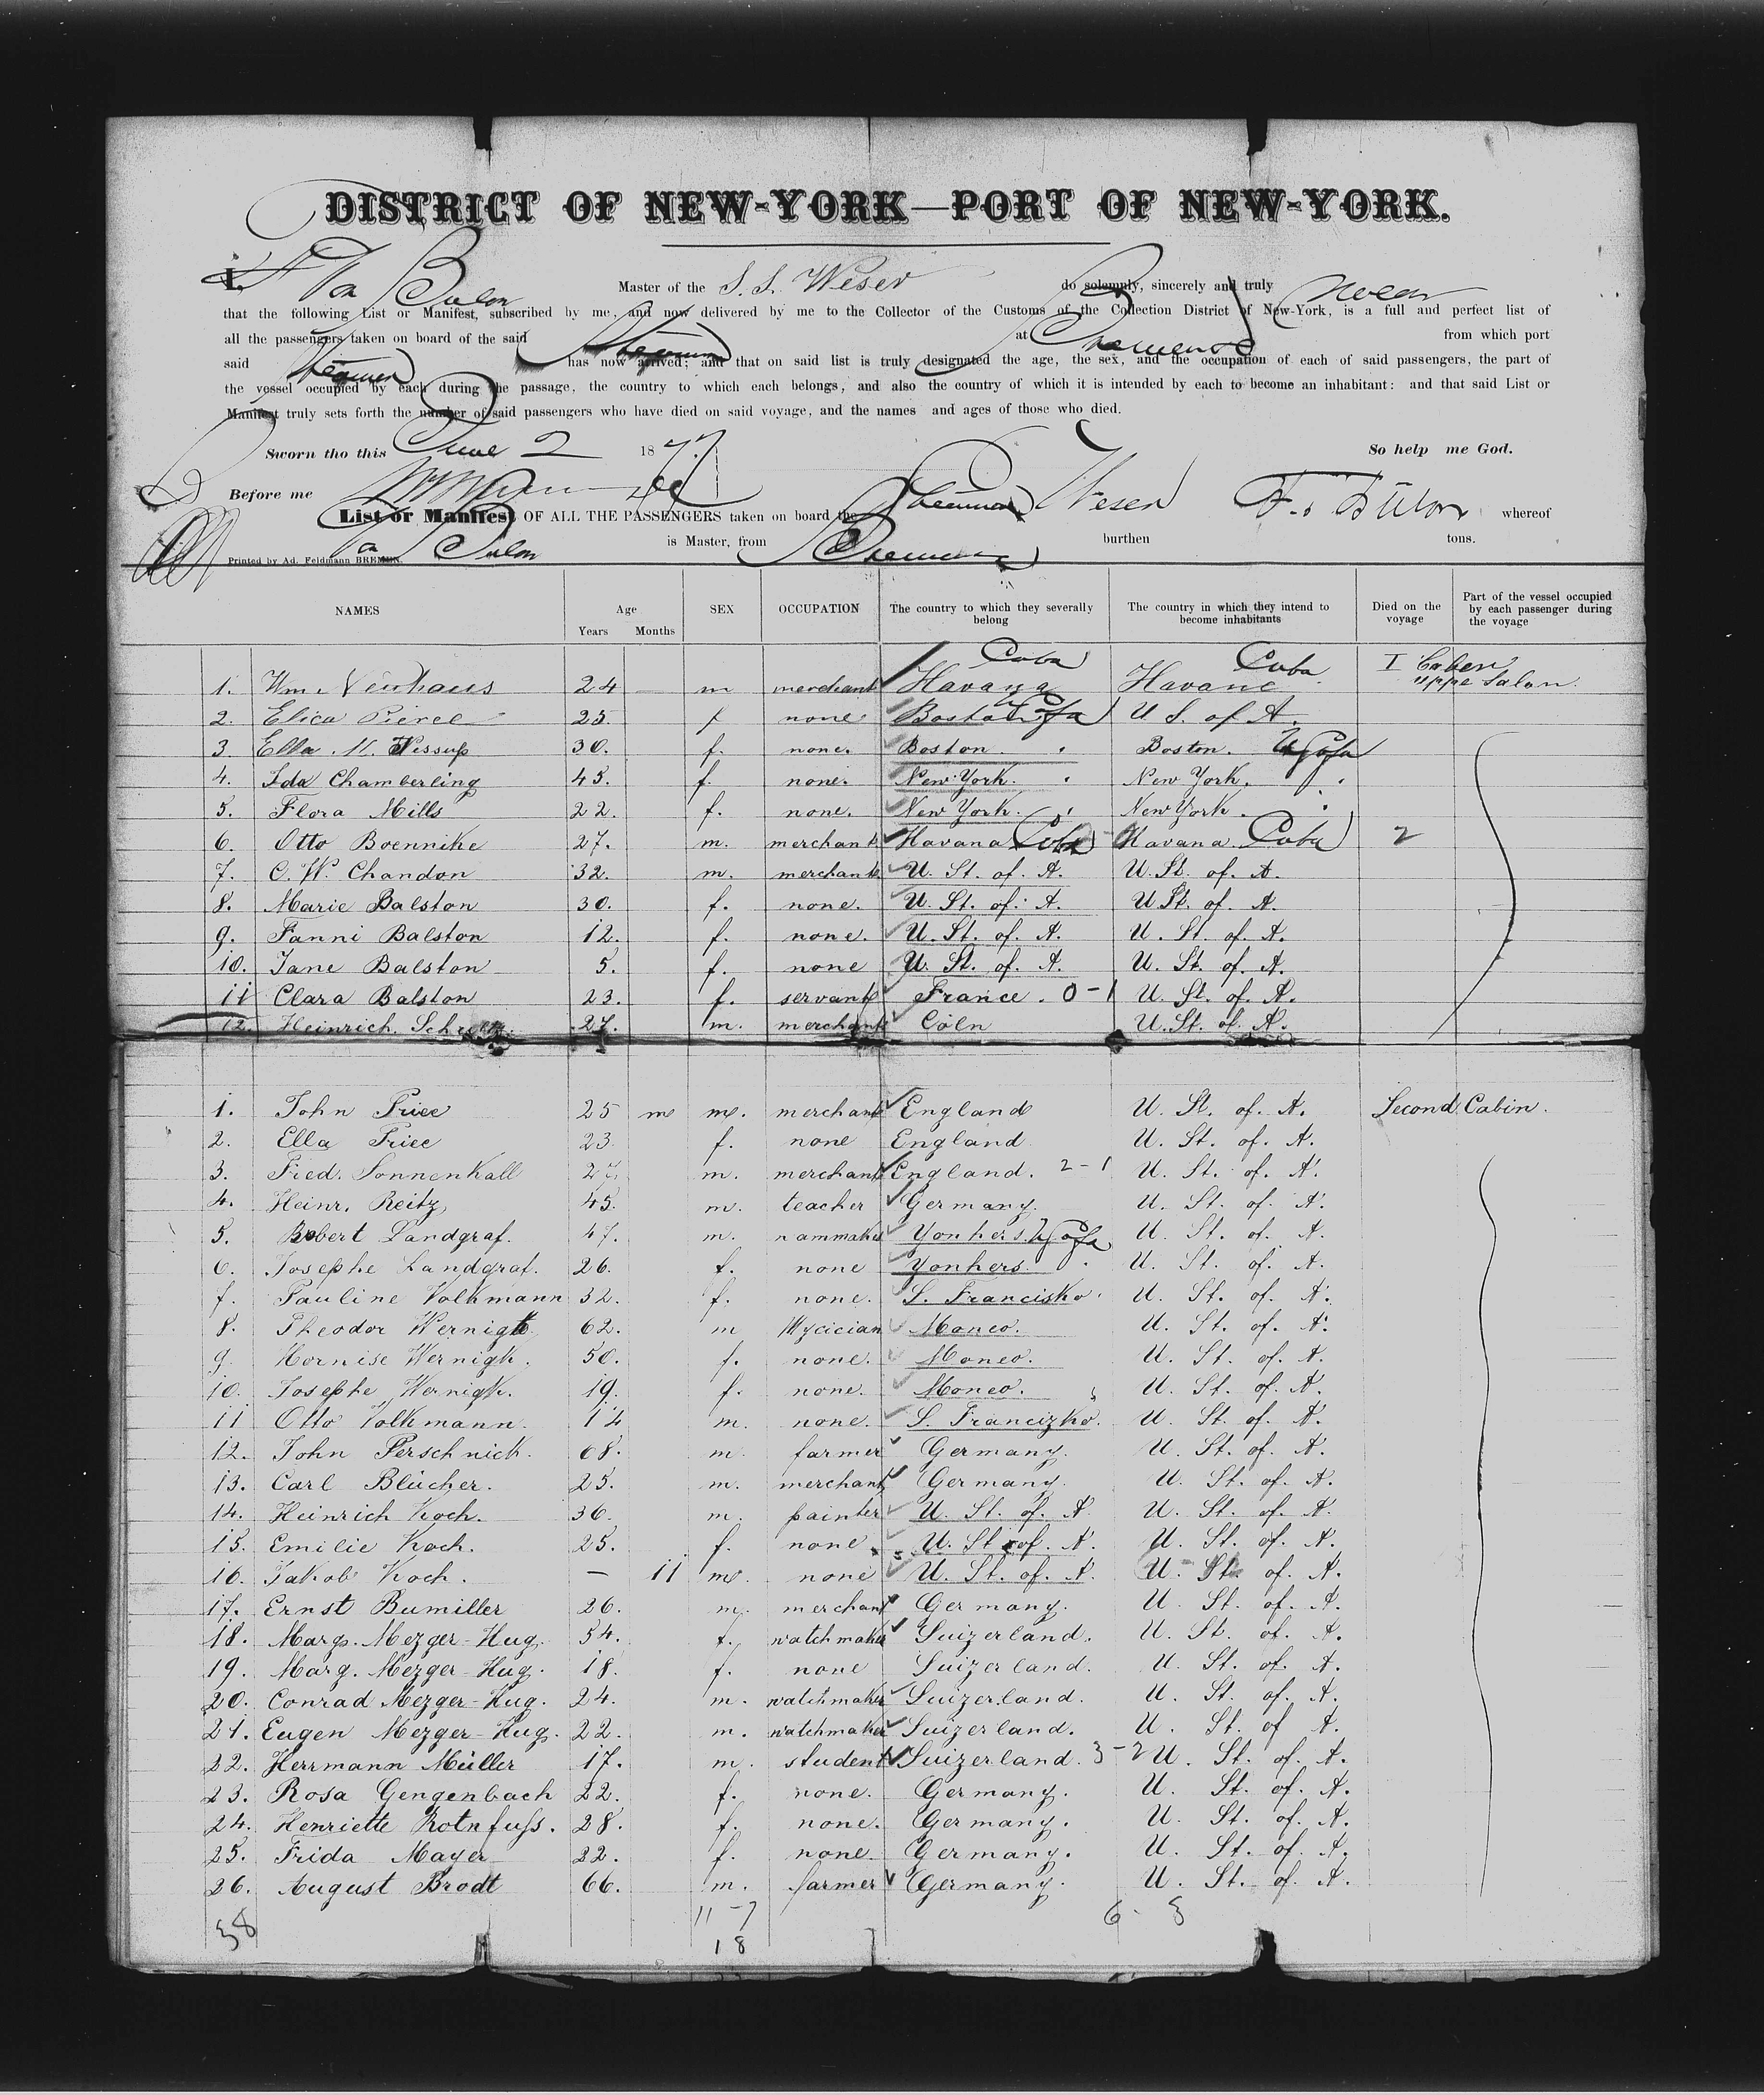 DISTRICT OF NEW-YORK—PORT OF NEW-YORK.
I, Von Bulon Master of the S. S. Weser do solemnly, sincerely and truly swear
that the following List or Manifest, subscribed by me, and now delivered by me to the Collector of the Customs of the Collection District of New-York, is a full and perfect list of
all the passengers taken on board of the said Steamer at Bremen from which port
said Steamer has now arrived; and that on said list is truly designated the age, the sex, and the occupation of each of said passengers, the part of
the vessel occupied by each during the passage, the country to which each belongs, and also the country of which it is intended by each to become an inhabitant: and that said List or
Manifest truly sets forth the number of said passengers who have died on said voyage, and the names and ages of those who died.
Sworn tho this June 2 1877. So help me God.
Before me
List or Manifest OF ALL THE PASSENGERS taken on board the Steamer Weser F. v. Bülow whereof
Von Bulon is Master, from Bremen burthen tons.
Printed by Ad. Feldmann BREMEN.
NAMES Age Years Months SEX OCCUPATION The country to which they severally belong The country in which they intend to become inhabitants Died on the voyage Part of the vessel occupied by each passenger during the voyage
1. Wm. Neuhaus 24 — m merchant Havana Cuba Havane Cuba I Caben uppe Salon
2. Elica Pierce 25. f none Boston USofa U S. of A.
3 Ella M. Wessup 30. f. none. Boston. " Boston. USofa
4. Ida Chamberling 45. f. none. New York. " New York. "
5. Flora Mills 22. f. none. New York. " New York. "
6. Otto Boennike 27. m. merchant Havana Cuba Havana. Cuba 2
7. C. W. Chandon 32. m. merchant U. St. of. A. U. St. of. A.
8. Marie Balston 30. f. none. U. St. of. A. U St. of. A.
9. Fanni Balston 12. f. none. U. St. of. A. U. St. of. A.
10. Jane Balston 5. f. none U. St. of. A. U. St. of. A.
11 Clara Balston 23. f. servant France. 0-1 U. St. of. A.
12. Heinrich 27. m. merchant Cöln U. St. of. A.
1. John Price 25 m m. merchant England U. St. of. A. Second Cabin.
2. Ella Price 23. f. none England U. St. of. A.
3. Fred. Sonnenkall 27. m. merchant England. 2-1 U. St. of. A.
4. Heinr. Reitz, 45. m. teacher Germany. U. St. of. A.
5. Robert Landgraf. 47. m. Yonhers. USofa U. St. of. A.
6. Josephe Landgraf. 26. f. none Yonhers. " U. St. of. A.
7. Pauline Volkmann 32. f. none. S. Francisko. U. St. of. A.
8. Theodor Wernigk 62. m Mycician Moneo. U. St. of. A.
9. Hornise Wernigk. 50. f. none. Moneo. U. St. of. A.
10. Josephe Wernigk. 19. f. none. Moneo. U. St. of. A.
11 Otto Volkmann. 14 m. none. S. Francizko. U. St. of. A.
12. John Perschnick. 68. m. farmer Germany. U. St. of. A.
13. Carl Blücher. 25. m. merchant Germany. U. St. of. A.
14. Heinrich Koch. 36. m. painter U. St. of. A. U. St. of. A.
15. Emilie Koch. 25. f. none U. St. of. A. U. St. of. A.
16. Jakob Koch. — 11 m. none U. St. of. A. U. St. of. A.
17. Ernst Bumiller 26. m. merchant Germany. U. St. of. A.
18. Marg. Mezger-Hug. 54. f. watchmaker Suizerland. U. St. of. A.
19. Marg. Mezger-Hug. 18. f. none Suizerland. U. St. of. A.
20. Conrad Mezger-Hug. 24. m. watchmaker Suizerland. U. St. of. A.
21. Eugen Mezger-Hug. 22. m. watchmaker Suizerland. U. St. of A.
22. Herrmann Müller 17. m. student Suizerland. 3-2 U. St. of. A.
23. Rosa Gengenbach 22. f. none. Germany. U. St. of. A.
24. Henriette Rotnfuss. 28. f. none. Germany. U. St. of. A.
25. Frida Mayer 22. f. none. Germany. U. St. of. A.
26. August Brodt 66. m. farmer Germany. U. St. of. A.
38 11-7 6-8
18